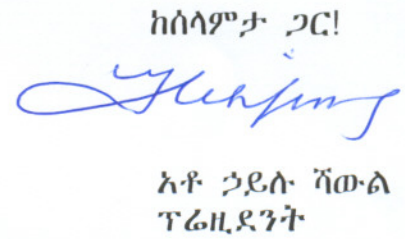 ከሰላምታ ጋር!
አቶ ኃይሉ ሻውል
ፕሬዚደንት